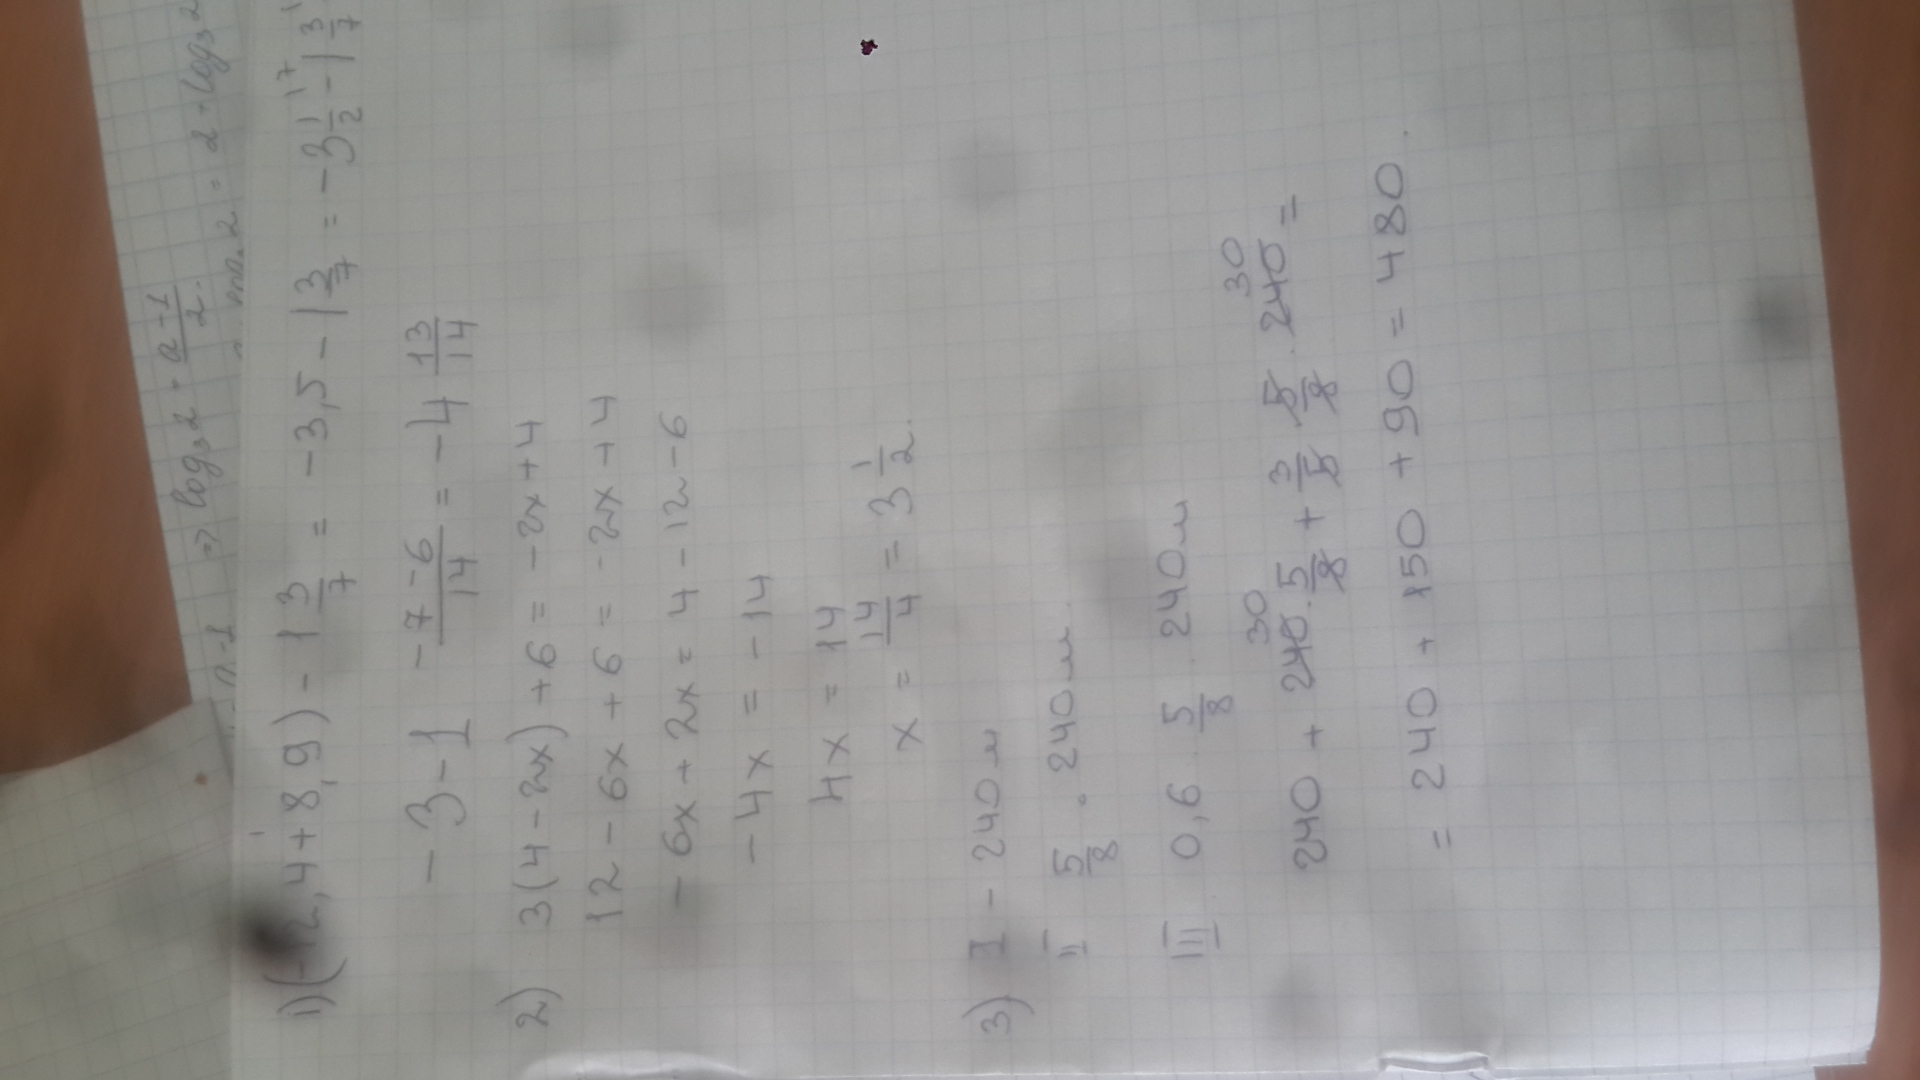 ⇒ log₃2 · (a-1)/2.
= 2 · log₃2
1) (-12,4+8,9) - 1 3/7 = -3,5 - 1 3/7 = -3 1/2 - 1 3/7
-3-1 -7-6/14 = -4 13/14
2) 3(4-2x)+6 = -2x+4
12-6x+6 = -2x+4
-6x+2x = 4-12-6
-4x = -14
4x = 14
x = 14/4 = 3 1/2.
3) I - 240м
II 5/8 · 240м.
III 0,6 · 5/8 · 240м
240 + 240 · 5/8 + 3/5 · 5/8 · 240 =
30 30
= 240 + 150 + 90 = 480.